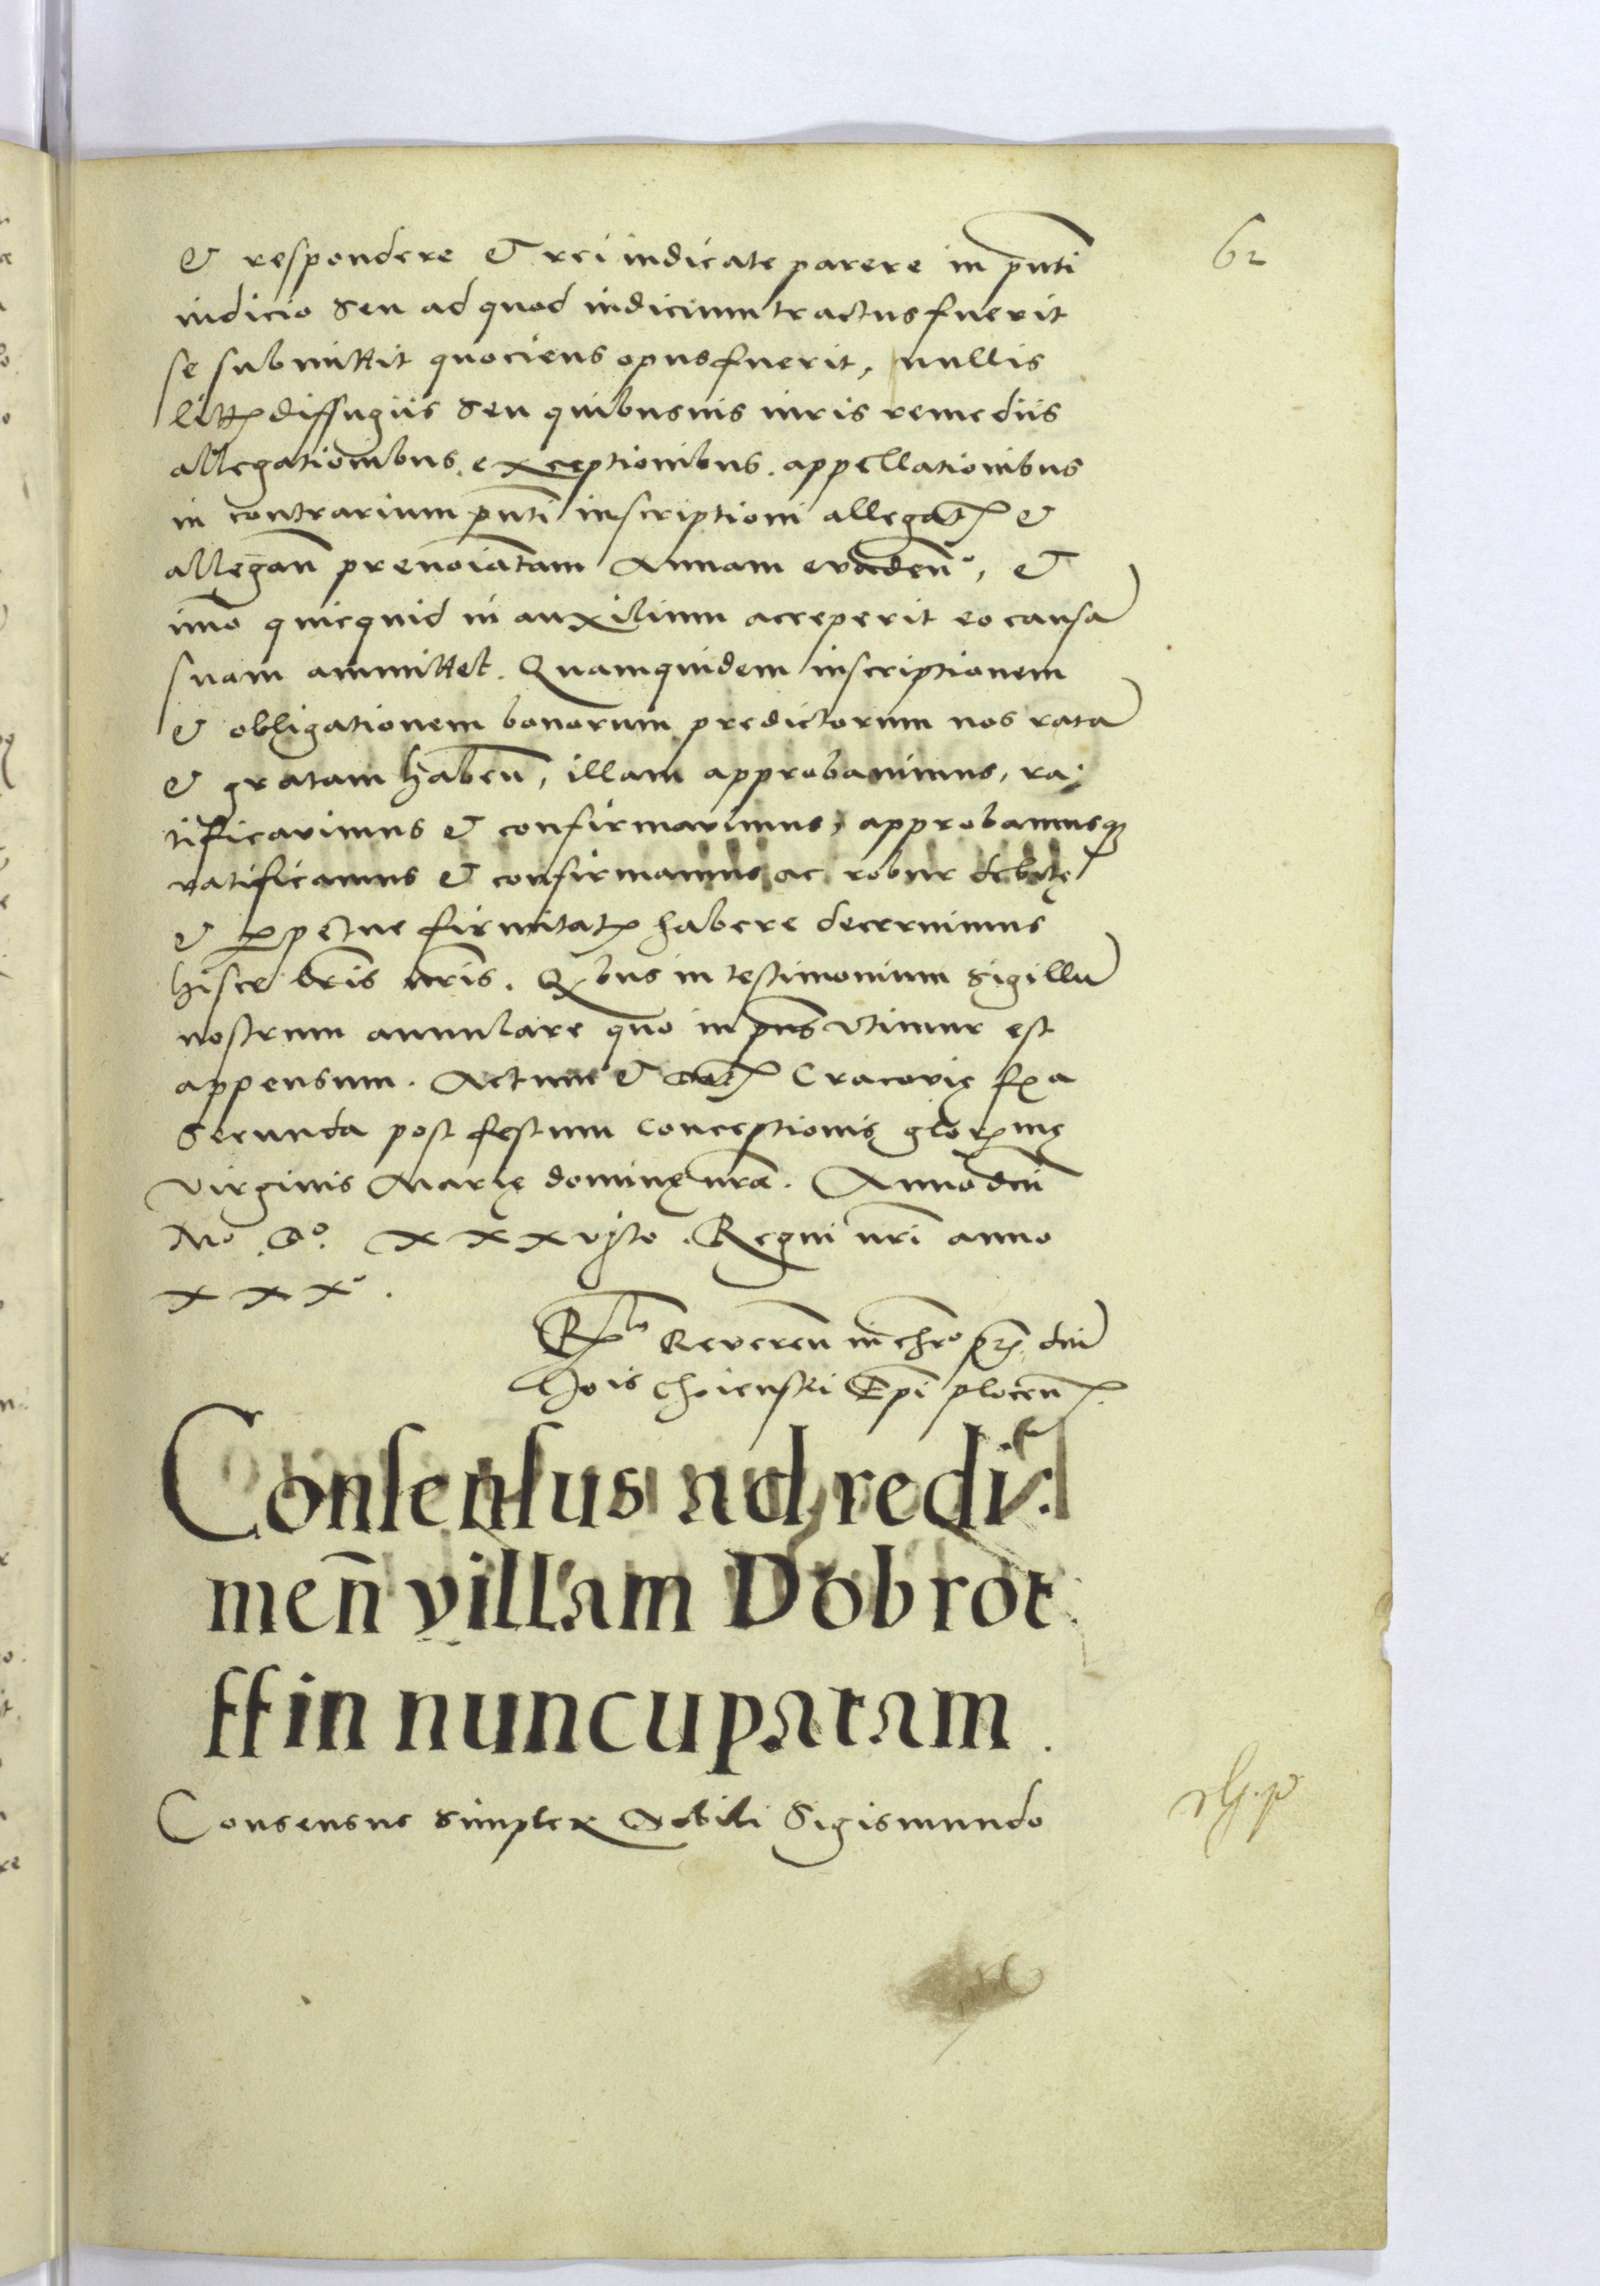 62
& respondere & rei iudicate parere in pn̄ti
iudicio seu ad quod iudicium tractus fuerit
se submittit quociens opus fuerit, nullis
diffugiis seu quibusuis iuris remediis
allegationibus. exceptionibus. appellationibus
in contrarium pn̄ti inscriptioni allegat &
allegan̄ prenoīatam Annam evaden̄°, &
imo quicquid in auxilium acceperit eo causā
suam ammittet. Quamquidem inscriptionem
& obligationem bonorum predictorum nos ratā
& gratam haben̄, illam approbauimus, ra
tificavimus & confirmavimus, approbamusq
ratificamus & confirmamus ac robur debitę
& ꝑpetue firmitat habere decernimus
hisce lr̄is nr̄is. Qbus in testimonium sigillū
nostrum annulare quo in pn̄s vtimur est
appensum. Actum & dat Cracovię fia
secunda post festum conceptionis glorme
virginis Marię dominę nr̄a. Anno dn̄i
Mo. Do. xxxvjto. Regni nr̄i anno
xxxo.
Reveren in chro dn̄i
Jois Choienski Ep̄i plocen
Consensus ad redi
men̄ villam Dobrot
ffin nuncupatam.
Consensus simplex Nobili Sigismundo